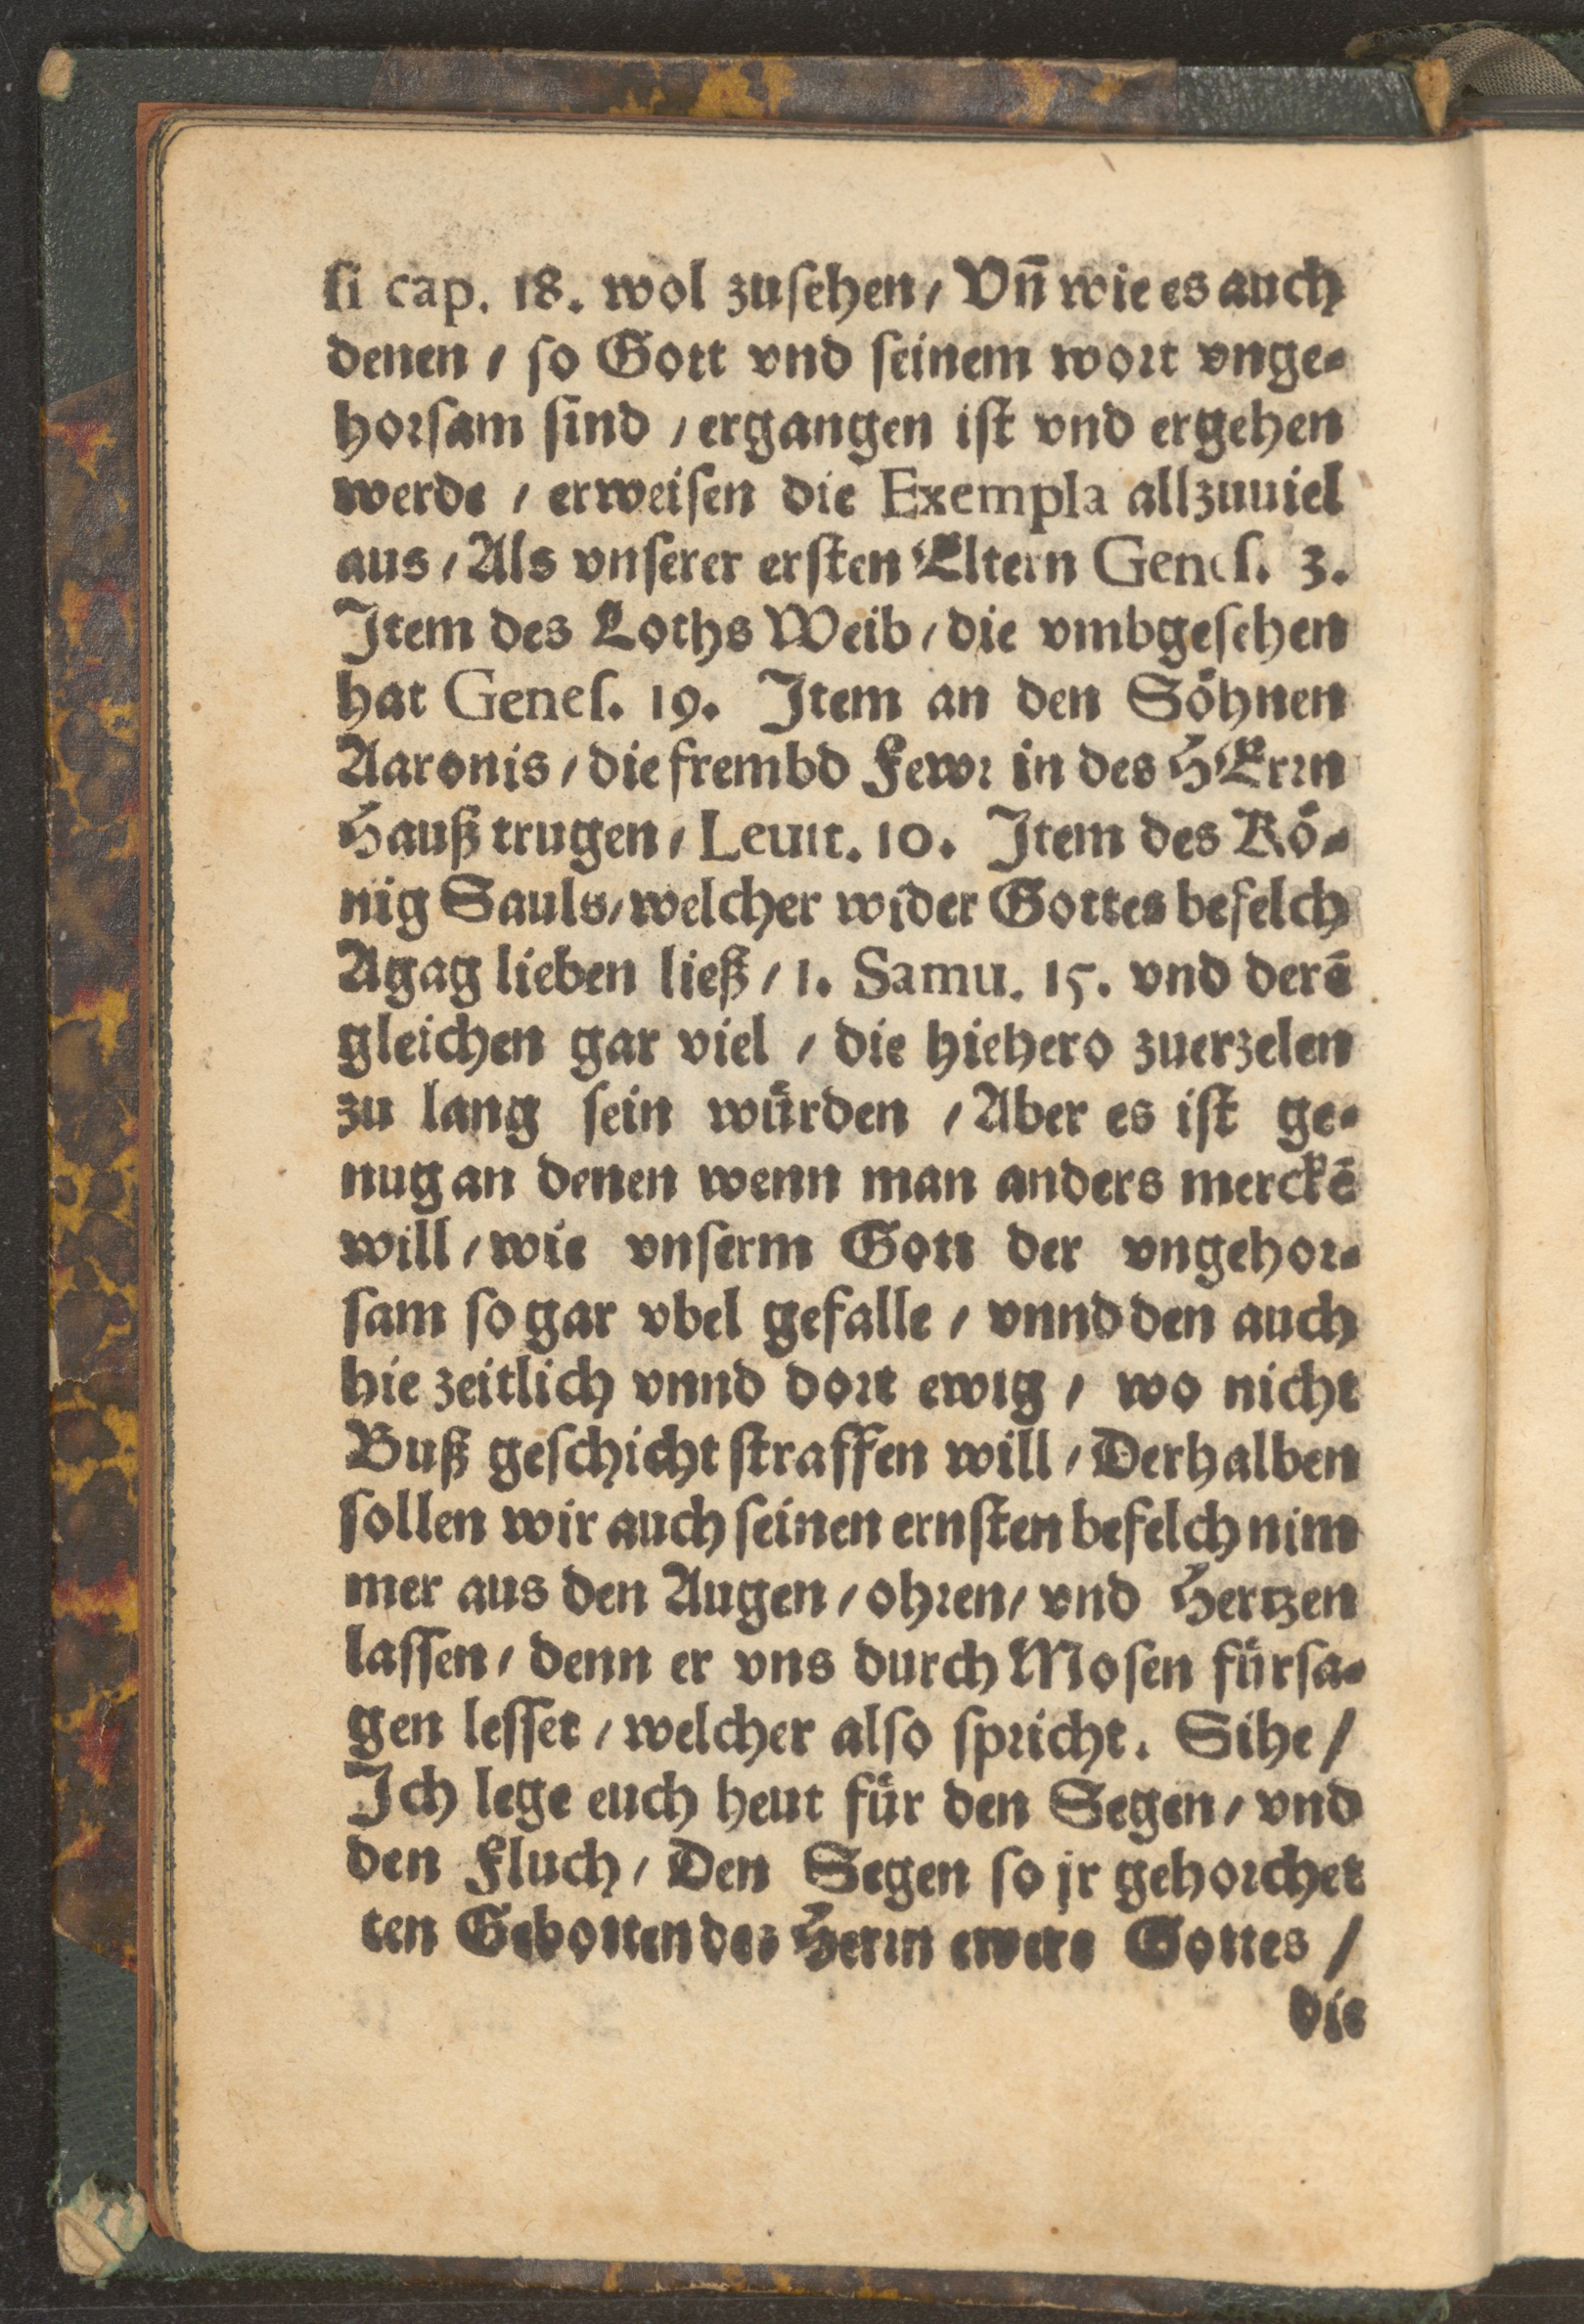 ſi cap. 18. wol zuſehen / Vn̄ wie es auch
denen / ſo Gott vnd ſeinem wort vnge⸗
horſam ſind / ergangen iſt vnd ergehen
werde / erweiſen die Exempla allzuuiel
aus / Als vnſerer erſten Eltern Geneſ. 3.
Item des Loths Weib / die vmbgeſehen
hat Geneſ. 19. Item an den Söhnen
Aaronis / die frembd Fewr in des HErrn
Hauß trugen / Leuit. 10. Item des Kö⸗
nig Sauls / welcher wider Gottes befelch
Agag lieben ließ / 1. Samu. 15. vnd derē
gleichen gar viel / die hiehero zuerzelen
zu lang ſein würden / Aber es iſt ge⸗
nug an denen wenn man anders merckē
will / wie vnſerm Gott der vngehor⸗
ſam ſo gar vbel gefalle / vnnd den auch
hie zeitlich vnnd dort ewig / wo nicht
Buß geſchicht ſtraffen will / Derhalben
ſollen wir auch ſeinen ernſten befelch nim
mer aus den Augen / ohren / vnd Hertzen
laſſen / denn er vns durch Moſen fürſa⸗
gen leſſet / welcher alſo ſpricht. Sihe /
Ich lege euch heut für den Segen / vnd
den Fluch / Den Segen ſo jr gehorchet
ten Gebotten des Herrn ewers Gottes /
die